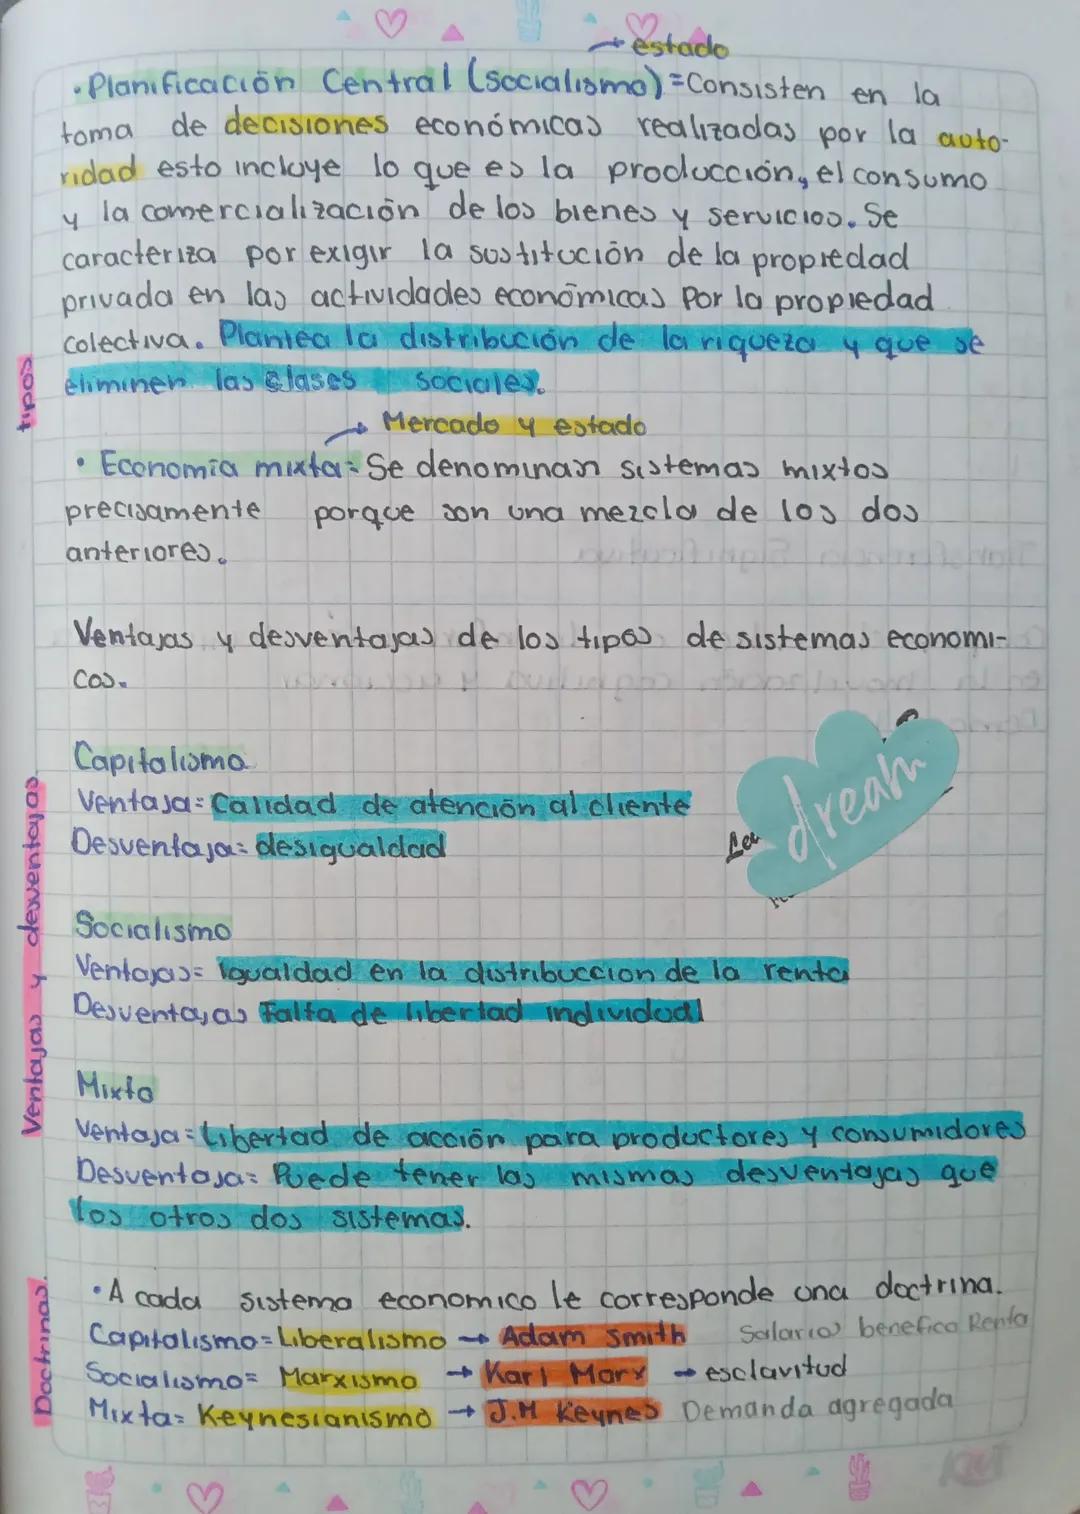 → estado
• Planificación Central (socialismo) = Consisten en la
toma de decisiones económicas realizadas por la auto-
ridad esto incluye lo que es la producción, el consumo
y la comercialización de los bienes y servicios. Se
caracteriza por exigir la sustitución de la propiedad
privada en las actividades económicas por la propiedad
colectiva. Plantea la distribución de la riqueza y que se
eliminen las clases sociales.
tipos
→ Mercado y estado
• Economía mixta: Se denominan sistemas mixtos
precisamente porque son una mezcla de los dos
anteriores.
Ventajas y desventajas de los tipos de sistemas economi-
cos.
Ventajas y desventajas
Capitalismo
Ventaja: Calidad de atención al cliente
Desventaja: desigualdad
dream
Socialismo
Ventajas= Igualdad en la distribuccion de la renta
Desventajas Falta de libertad individual
Mixto
Ventaja = Libertad de acción para productores y consumidores
Desventaja: Puede tener las mismas desventajas que
los otros dos sistemas.
Doctrinas.
• A cada sistema economico le corresponde una doctrina.
Capitalismo = Liberalismo → Adam Smith Salarios benefico Renta
Socialismo = Marxismo → Karl Marx → esclavitud
Mixta = Keynesianismo → J.M Keynes Demanda agregada